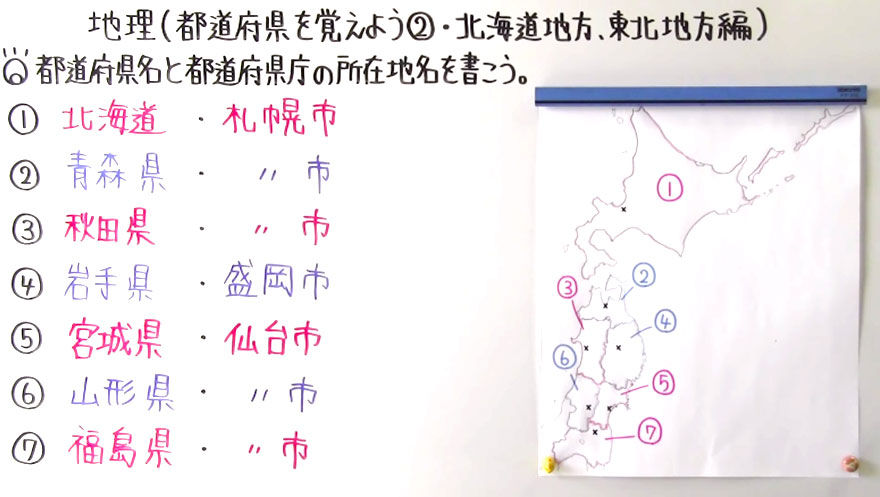 地理(都道府県を覚えよう②・北海道地方、東北地方編)
都道府県名と都道府県庁の所在地名を書こう。
① 北海道 ・ 札幌市
② 青森県 ・ 〃 市
③ 秋田県 ・ 〃 市
④ 岩手県 ・ 盛岡市
⑤ 宮城県 ・ 仙台市
⑥ 山形県 ・ 〃 市
⑦ 福島県 ・ 〃 市
①
②
③
④
⑥
⑤
⑦